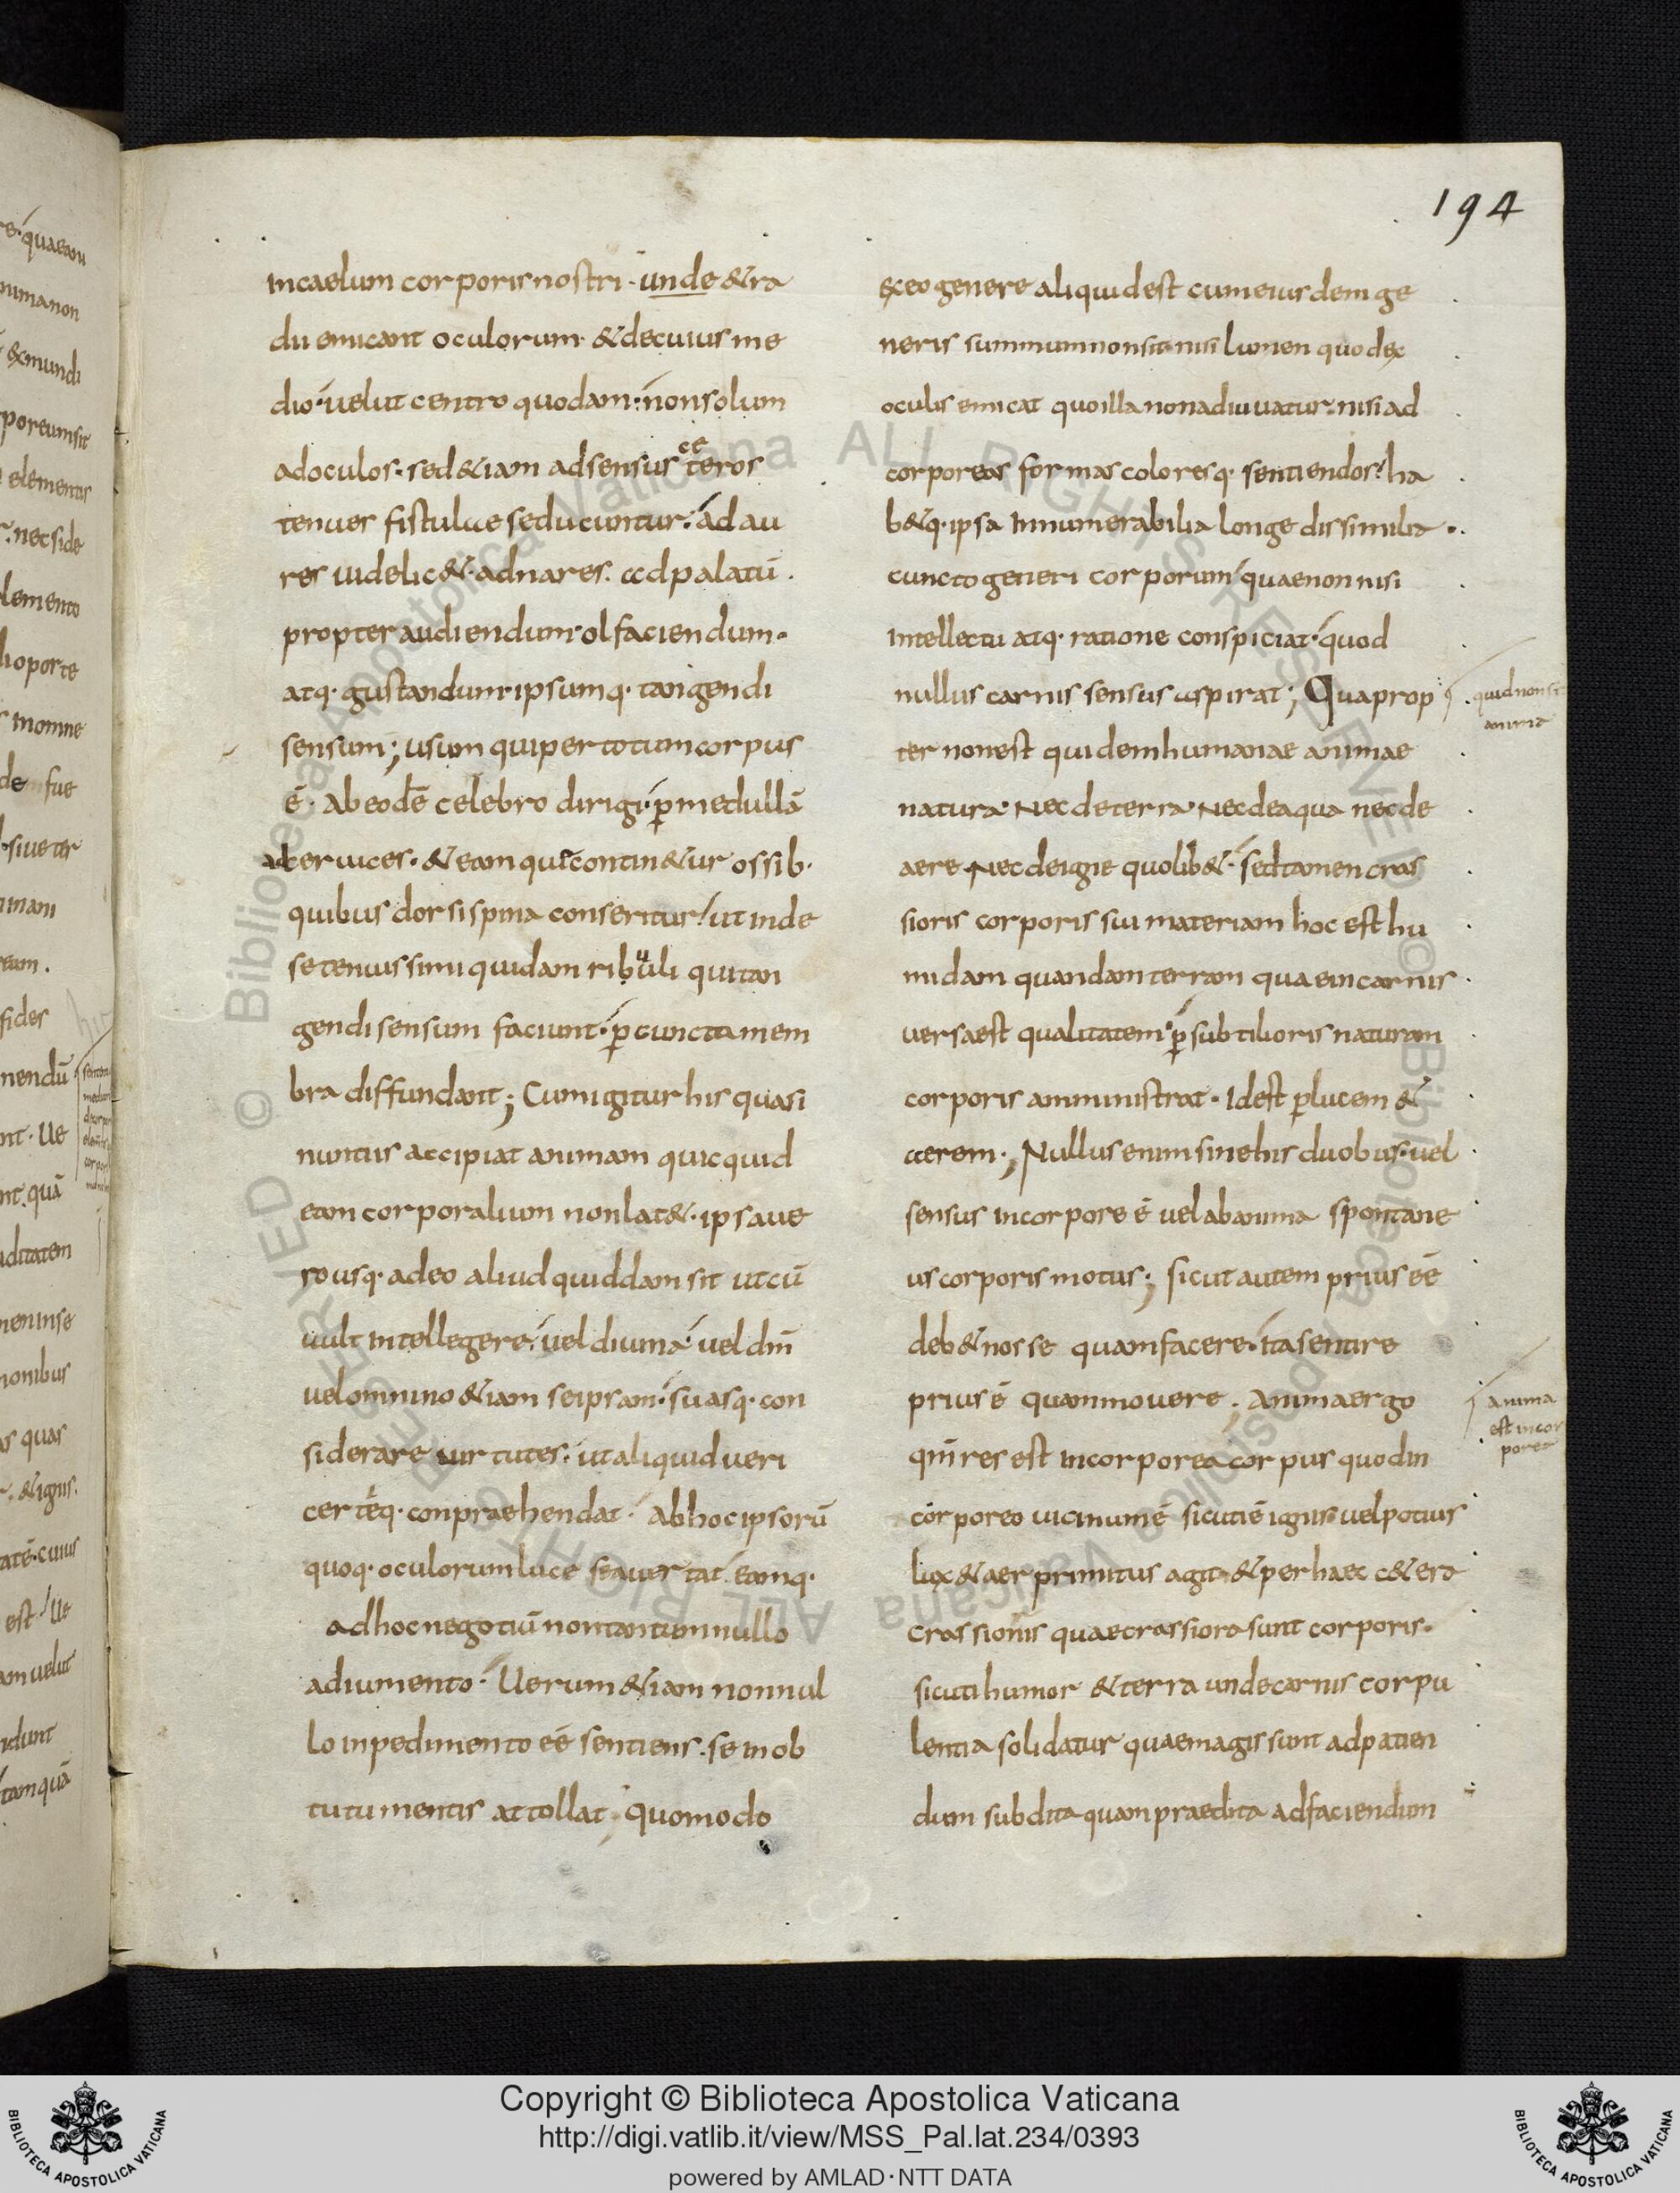 194
incaelum corporis nostri · unde & ra
dii emicant oculorum · & de cuius me
dio · uelut centro quodam · non solum
ad oculos · sed & iam ad sensus ceteros
tenues fistulae seducuntur · ad au
res uidelic& · ad nares · ad palatū ·
propter audiendum · olfaciendum ·
atq· gustandum · ipsumq· tangendi
sensum ; usum qui per totum corpus
ē · ab eodē celebro dirigi · p̱ medullā
ceruices · & eam qui contin&ur ossib·
quibus dorsi spina conseritur · ut inde
se tenuissimi quidam ribuli qui tan
gendi sensum faciunt · p̱ cuncta mem
bra diffundant ; Cum igitur his quasi
nuntiis accipiat animam quicquid
eam corporalium non lat& · ipsa ue
ro usq· adeo aliud quiddam sit ut cū
uult intellegere · uel diuina · uel dm̄
uel omnino & iam se ipsam · suasq· con
siderare uirtutes · ut aliquid ueri
certēq· conpraehendat · Ab hoc ipsorū
quoq· oculorum luce se auertat eamq·
ad hoc negotiū non tantum nullo
adiumento · Uerum & iam nonnul
lo inpedimento eē sentiens · se in ob
tutu mentis attollat ; quomodo
ex eo genere aliquid est cum eiusdem ge
neris summum non sit nisi lumen quod ex
oculis emicat quo illa non adiuuatur · nisi ad
corporeas formas coloresq· sentiendos · ha
b&q· ipsa innumerabilia longe dissimilia ·
cuncto generi corporum quae non nisi
intellectu atq· ratione conspiciat · quod
nullus carnis sensus aspirat ; Quaprop
quid non sit
anima
ter non est quidem humanae animae
natura · Nec de terra · Nec de aqua nec de
aere · Nec de igne quolib& · sed tamen cras
sioris corporis sui materiam hoc est hu
midam quandam terram quae in carnis
uersa est qualitatem · p̱ subtilioris naturam
corporis amministrat · Idest p̱ lucem &
aerem ; Nullus enim sine his duobus · uel
sensus in corpore ē uel ab anima spontane
us corporis motus ; sicut autem prius eē
deb& nosse quam facere · ita sentire
prius ē quam mouere ; Anima ergo
anima
est incor
porea
qm̄ res est incorporea corpus quod in
corporeo uicinum ē sicuti ē ignis uel potius
lux & aer primitus agit & per haec c&era
crassioris quae crassiora sunt corporis ·
sicuti humor & terra unde carnis corpu
lentia solidatur quae magis sunt ad patien
dum subdita quam praedita ad faciendum
Copyright © Biblioteca Apostolica Vaticana
http://digi.vatlib.it/view/MSS_Pal.lat.234/0393
powered by AMLAD·NTT DATA
BIBLIOTECA APOSTOLICA VATICANA
BIBLIOTECA APOSTOLICA VATICANA